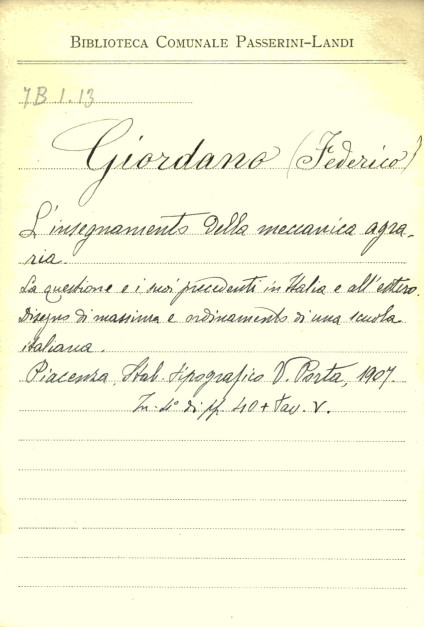 BIBLIOTECA COMUNALE PASSERINI-LANDI
7B.1.13
Giordano (Federico)
L'insegnamento della meccanica agra-
ria.
La questione e i suoi precedenti in Italia e all'estero.
Disegno di massima e ordinamento di una scuola
italiana.
Piacenza, Stab. tipografico V. Porta, 1907.
In-4° di pp. 40 + tav. V.